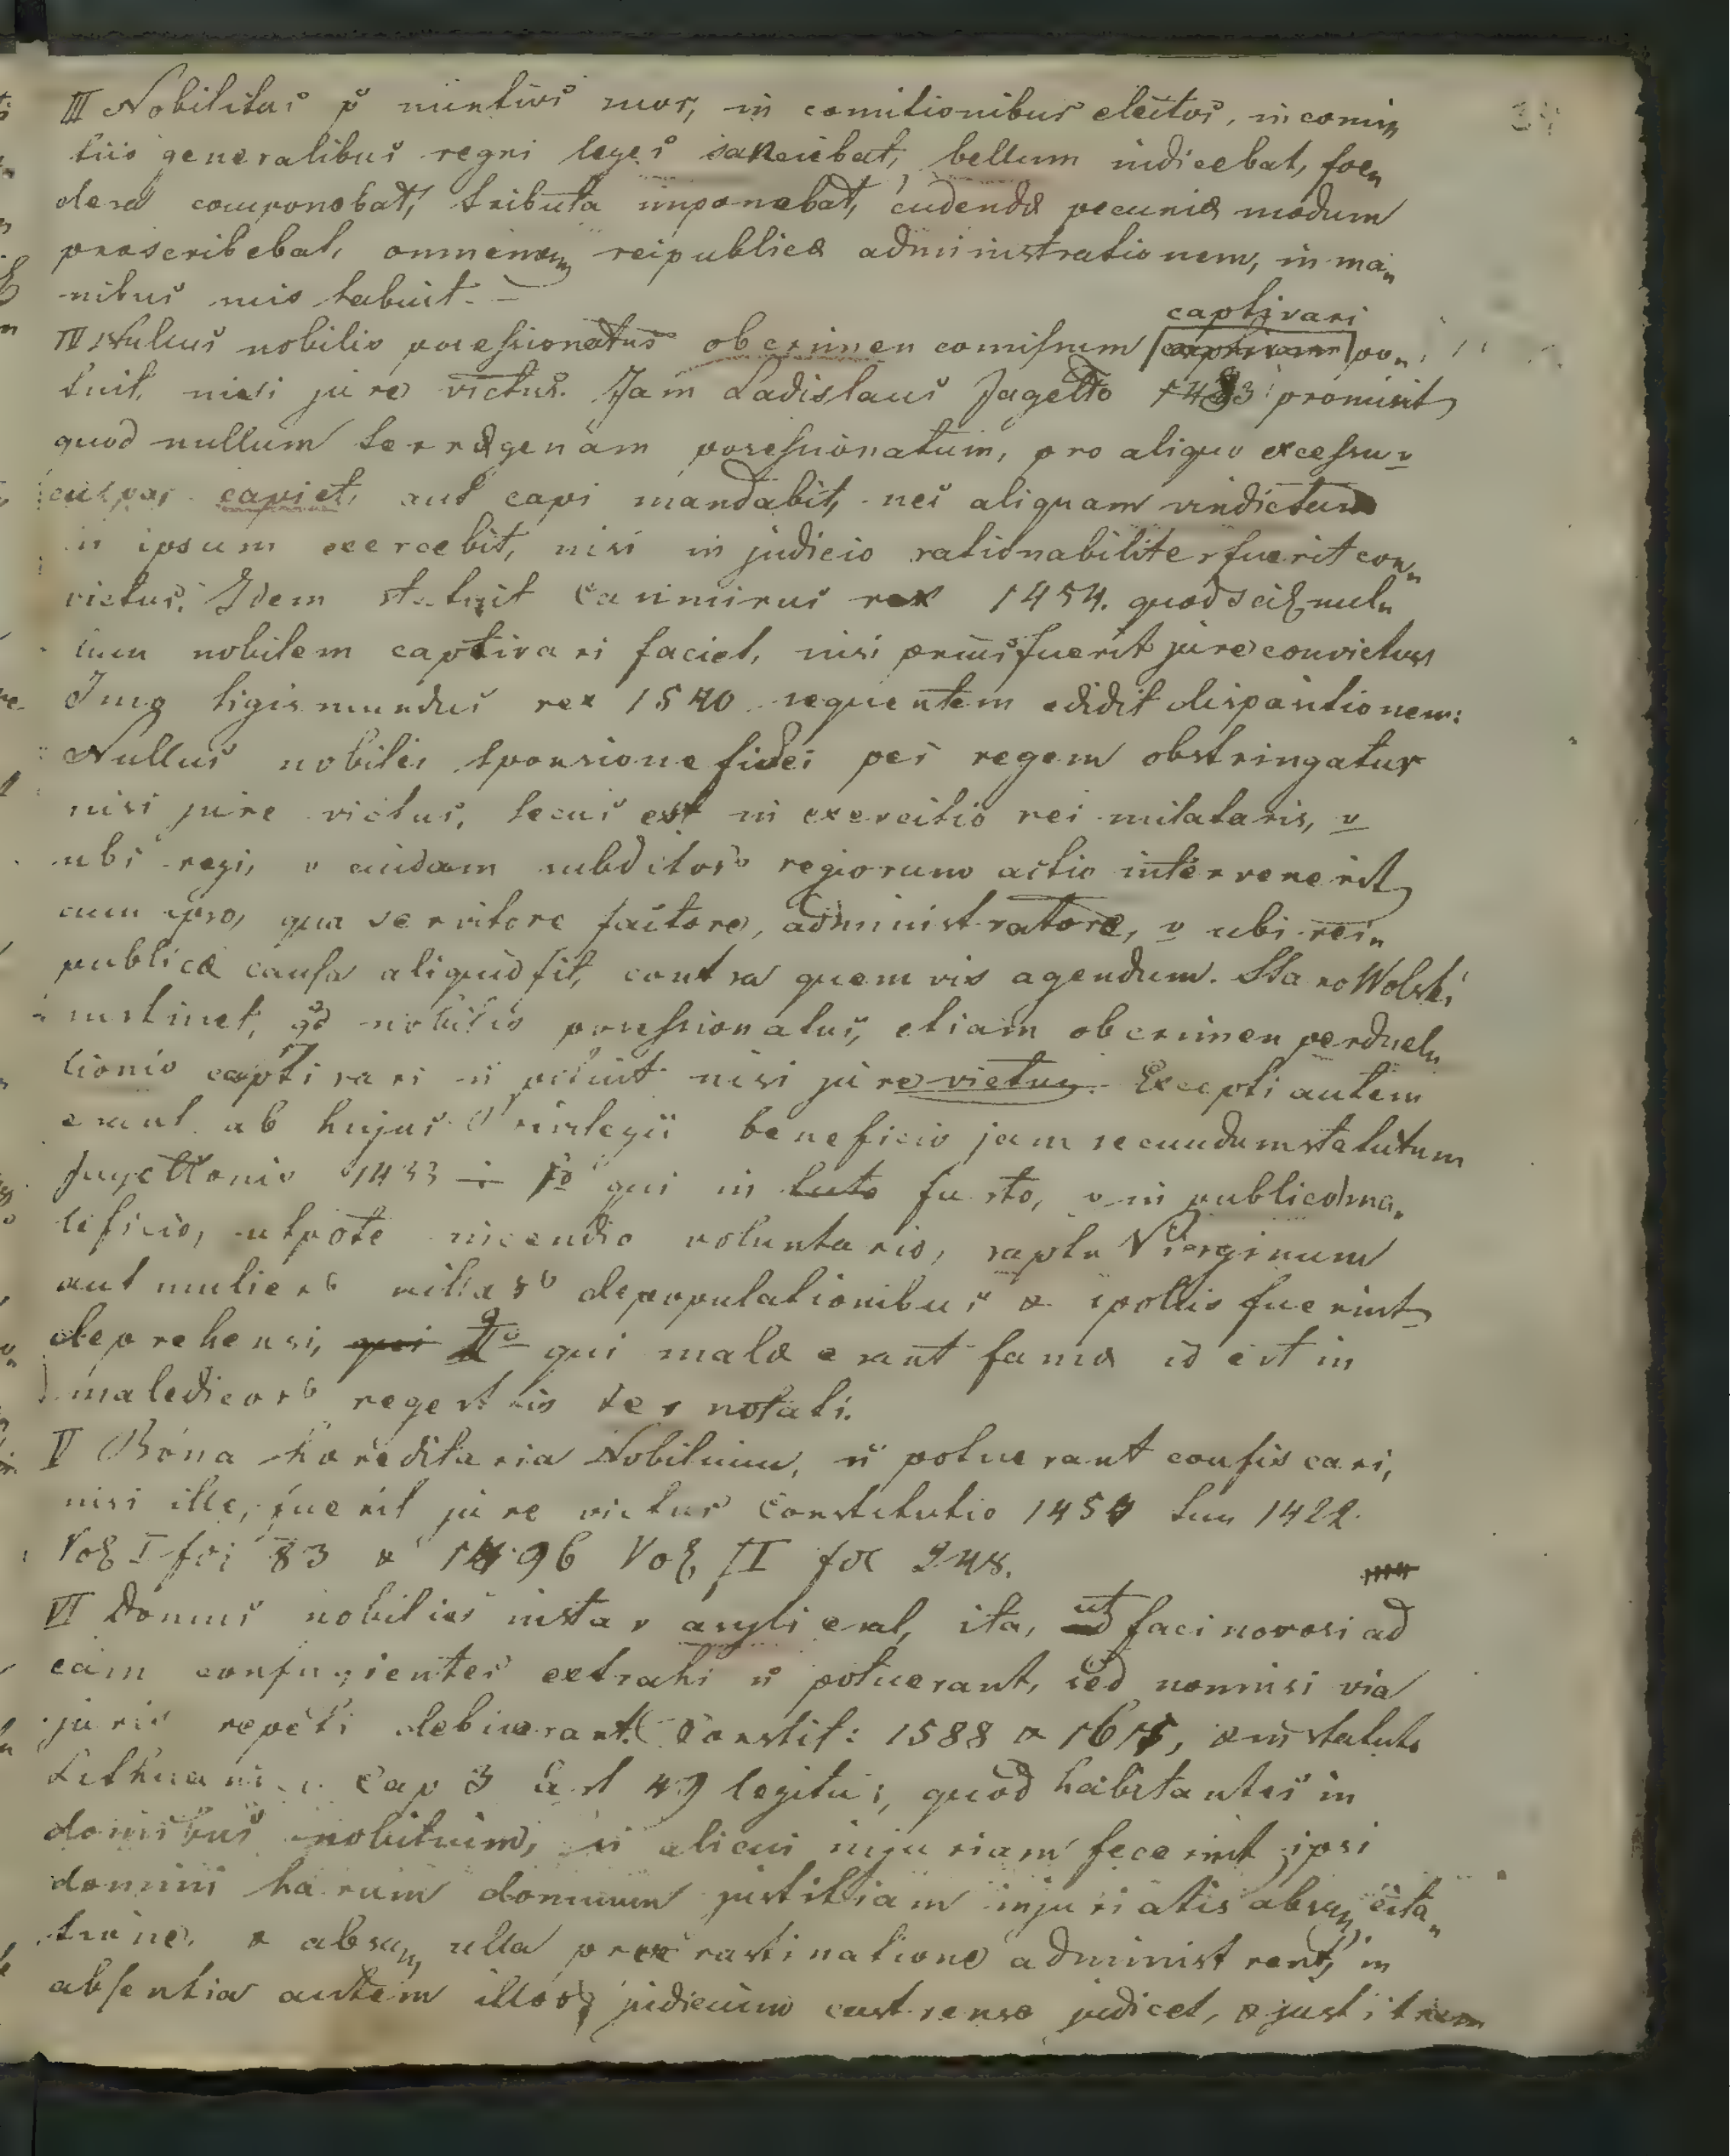 III Nobilitas p̃ nuntios suos, in comitionibus electos, in comi„
tiis generalibus regni leges sanciebat, bellum indicebat, foe„
dera componebat, tributa imponebat, cudendæ pecuniæ modum
præscribebat, omnem reipublicæ administrationem, in ma„
nibus suis habuit. –
IV Nullus nobilis possessionatus ob crimen comissum captivari po„
tuit, nisi jure victus. Jam Ladislaus Jagello 1433 promisit,
quod nullum terrægenam possessionatum, pro aliquo excessu v
culpa capiet, aut capi mandabit, nec aliquam vindictam
in ipsum exercebit, nisi in judicio rationabiliter fuerit con„
victus. Idem statuit Casimirus rex 1454. quod scil. nul„
lum nobilem captivari faciet, nisi prius fuerit jure convictus
Imo Sigismundus rex 1540 sequentem edidit dispositionem:
Nullus nobilis sponsione fidei per regem obstringatur
nisi jure victus, secus est in exercitio rei militaris, v
ubi regi, v cuidam subditor regiorum actio intervenerit,
cum ipso, qua servitore factore, administratore, v ubi rei„
publicæ causa aliquid fit, contra quemvis agendum. StaroWolski
instinet, qd nobilis possessionatus, etiam ob crimen perduel„
lionis captivari ñ potuit nisi jure victus. Excepti autem
erant ab hujus Privilegii beneficio jam secundum statutum
Jagellonis 1433 – 1o qui in furto, v in publico ma„
leficio, utpote incendio voluntario, raptu Virginum
aut mulier villar depopulationibus & spoliis fuerint
deprehensi, 2o qui malæ erant famæ id est in
maledicor regestris ter notati.
V Bona hæreditaria Nobilium, ñ potuerant confiscari,
nisi ille, fuerit jure victus Constitutio 1454 tum 1422.
Vol I fol 83 & 1496 Vol. II fol 248.
VI Domus nobilis instar asyli erat, ita, ut facinorosi ad
eam confugientes extrahi ñ potuerant, sed nonnisi via
juris repeti debuerant. Constit: 1588 & 1611, & in statuto
Lithuani Cap 3 Art 49 legitur, quod habitantes in
domibus nobilium, si alicui injuriam fecerint, ipsi
domini harum domuum justitiam injuriatis absq, cita„
tione, & absq, ulla procrastinatione administrent, in
absentia autem illor, judicium castrense judicet, & justitiam